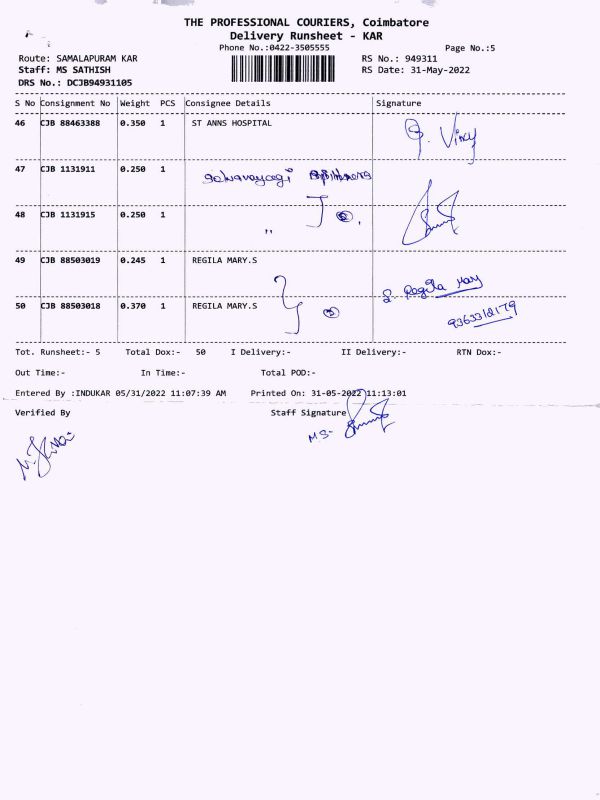 THE PROFESSIONAL COURIERS, Coimbatore
Delivery Runsheet - KAR
Phone No.:0422-3505555
Page No.:5
Route: SAMALAPURAM KAR
RS No.: 949311
Staff: MS SATHISH
RS Date: 31-May-2022
DRS No.: DCJB94931105
S No Consignment No Weight PCS Consignee Details Signature
46 CJB 88463388 0.350 1 ST ANNS HOSPITAL
47 CJB 1131911 0.250 1
48 CJB 1131915 0.250 1 "
49 CJB 88503019 0.245 1 REGILA MARY.S
S. Regila Mary
50 CJB 88503018 0.370 1 REGILA MARY.S
Tot. Runsheet:- 5 Total Dox:- 50 I Delivery:- II Delivery:- RTN Dox:-
Out Time:- In Time:- Total POD:-
Entered By :INDUKAR 05/31/2022 11:07:39 AM Printed On: 31-05-2022 11:13:01
Verified By Staff Signature
M.S-